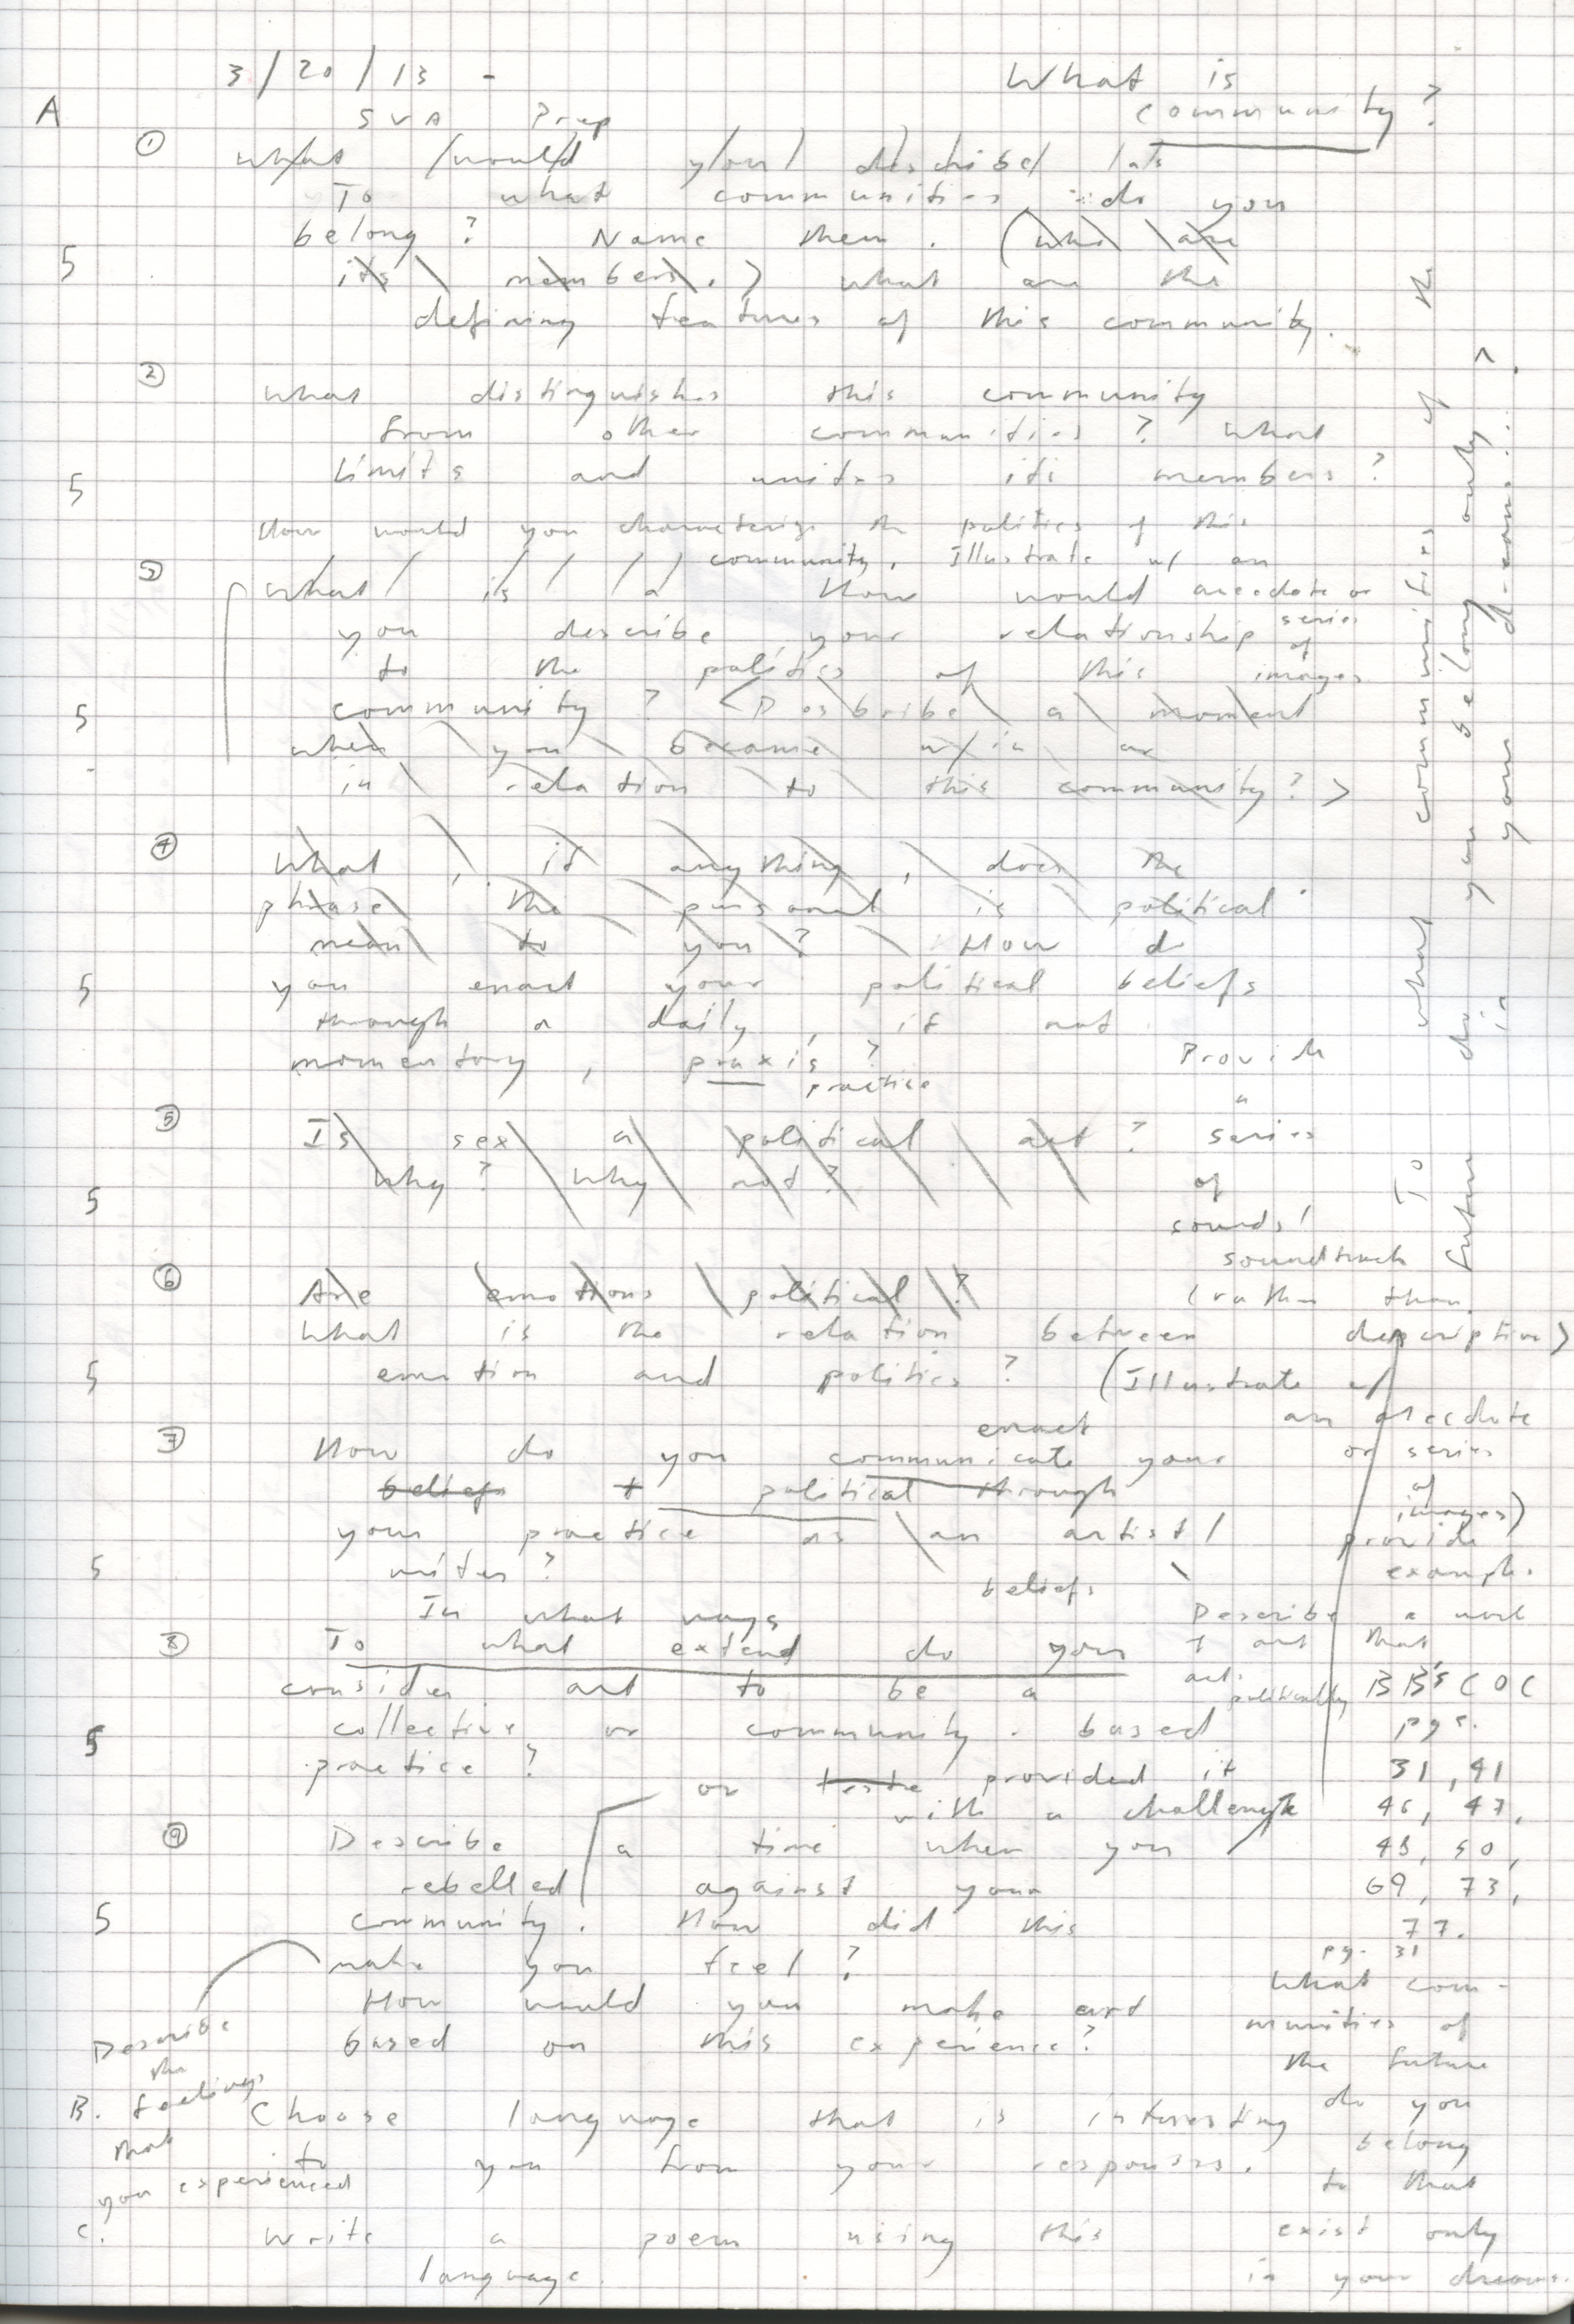 3/20/13 -
What is
community?
A
SVA Prep
①
What would you describe as
To what communities do you
belong? Name them. (who are
5
its members.) what are the
defining features of this community.
②
What distinguishes this community
from other communities? What
limits and unites its members?
5
How would you characterize the politics of this
community. Illustrate w/ an
anecdote or
series
of
images
③
What is a How would
you describe your relationship
to the politics of this
community? (Describe a moment
5
when you became w/in or
in relation to this community?)
④
What, if anything, does the
phrase the personal is political
mean to you? How do
you enact your political beliefs
5
through a daily, if not
momentary, praxis?
practice
Provide
a
series
of
sounds/
soundtrack
(rather than
description)
⑤
Is sex a political act?
Why? Why not?
5
⑥
Are emotions political?
What is the relation between
emotion and politics? (Illustrate w/
an anecdote
or series
of
images)
5
⑦
enact
How do you communicate your
beliefs + political through
your practice as an artist/
writer?
beliefs
provide
example.
5
In what ways
⑧
To what extend do you
consider art to be a
collective or community-based
practice?
5
Describe a work
of art that
acts
politically
BB's COC
pgs.
31, 41
46, 47,
48, 50,
69, 73,
77.
or provided it
with a challenge
⑨
Describe a time when you
rebelled against your
community. How did this
5
make you feel?
How would you make art
based on this experience?
Describe
the
feelings
that
you experienced
B.
Choose language that is interesting
to you from your responses.
C.
Write a poem using this
language.
pg. 31
What com-
munities of
the future
do you
belong
to that
exist only
in your dreams.
To what communities of the
future do you belong only
in your dreams?